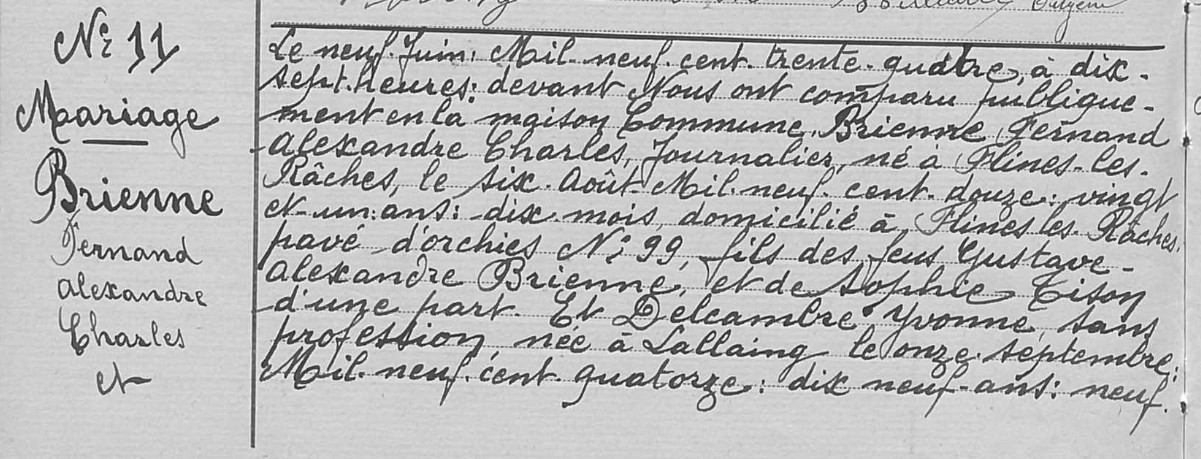 Nº 11
Mariage
Brienne
Fernand
Alexandre
Charles
et
Le neuf Juin, Mil-neuf-cent-trente-quatre, à dix-
sept-heures: devant Nous ont comparu publique-
ment en la maison Commune, Brienne Fernand
Alexandre Charles, Journalier, né à Flines-les-
Râches, le six-Août-Mil-neuf-cent-douze: vingt
et-un-ans: dix mois, domicilié à Flines-les-Râches,
pavé d'orchies Nº 99, fils des feus Gustave-
Alexandre Brienne, et de Sophie Tison
d'une part. Et Delcambre Yvonne, sans
profession, née à Lallaing le onze septembre:
Mil-neuf-cent-quatorze: dix neuf-ans: neuf